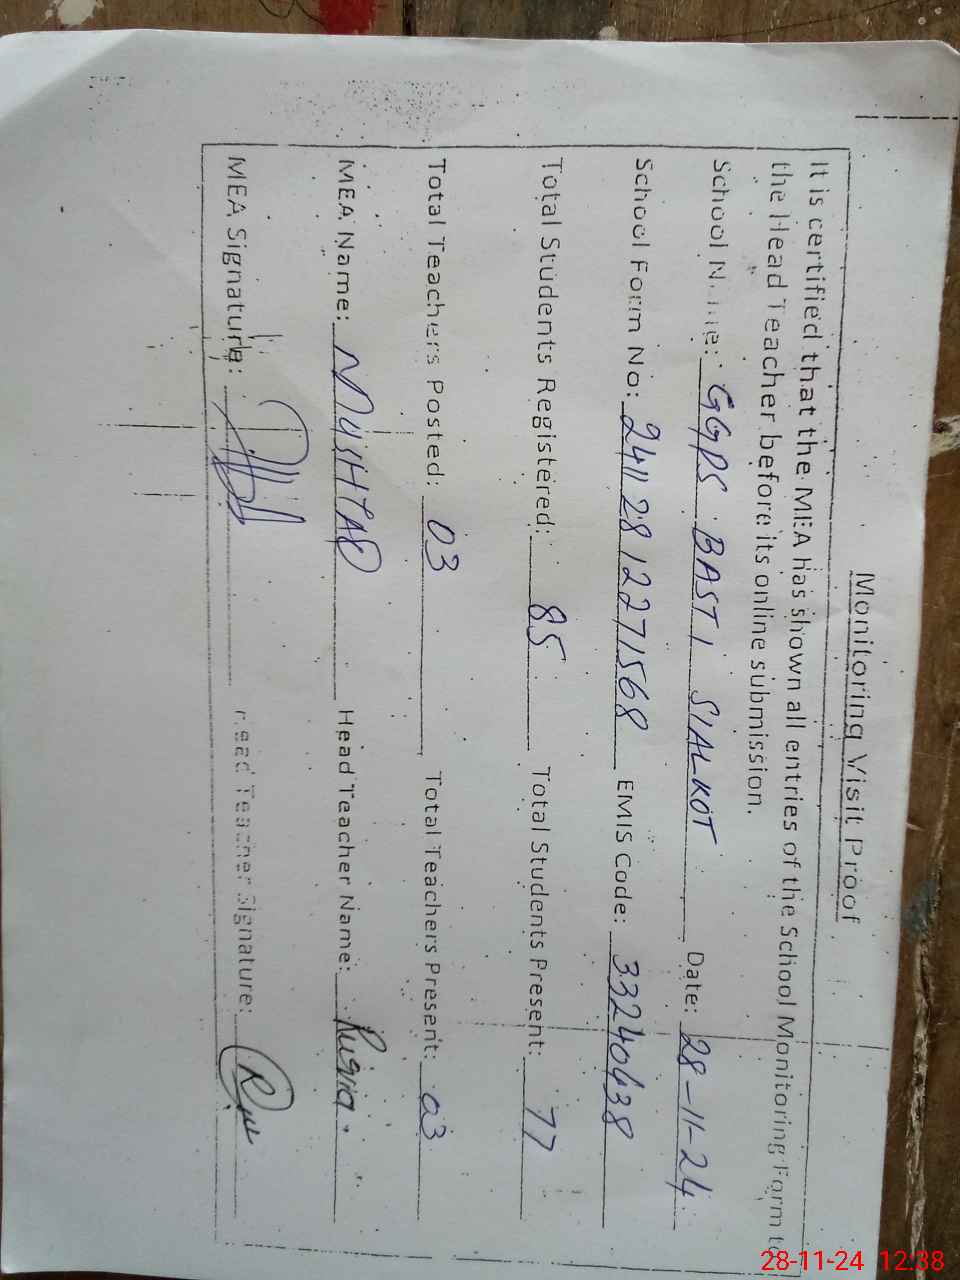 Monitoring Visit Proof
It is certified that the MEA has shown all entries of the School Monitoring Form to
the Head Teacher before its online submission.
School Name: GGPS BASTI SIALKOT Date: 28-11-24
School Form No: 241128 12271568 EMIS Code: 33240438
Total Students Registered: 85 Total Students Present: 77
Total Teachers Posted: 03 Total Teachers Present: 03
MEA Name: MUSHTAQ Head Teacher Name: Ruqia
MEA Signature: Head Teacher Signature:
28-11-24 12:38